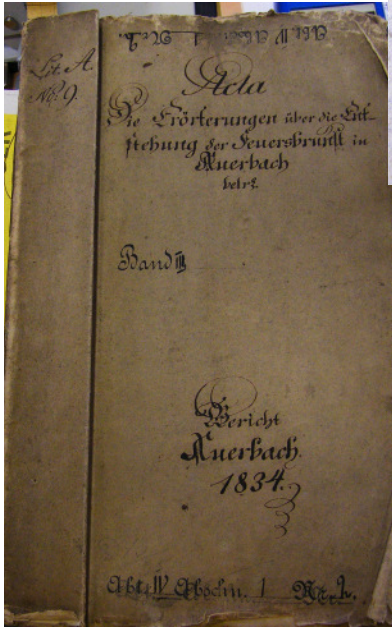 Abt. IV Abschn. 1 Nr. 2.
Lit. A.
No. 9.
Acta
Die Erörterungen über die Ent-
stehung der Feuersbrunst in
Auerbach
betr.
Band III
Bericht
Auerbach.
1834.
Abt. IV Abschn. 1 Nr. 2.